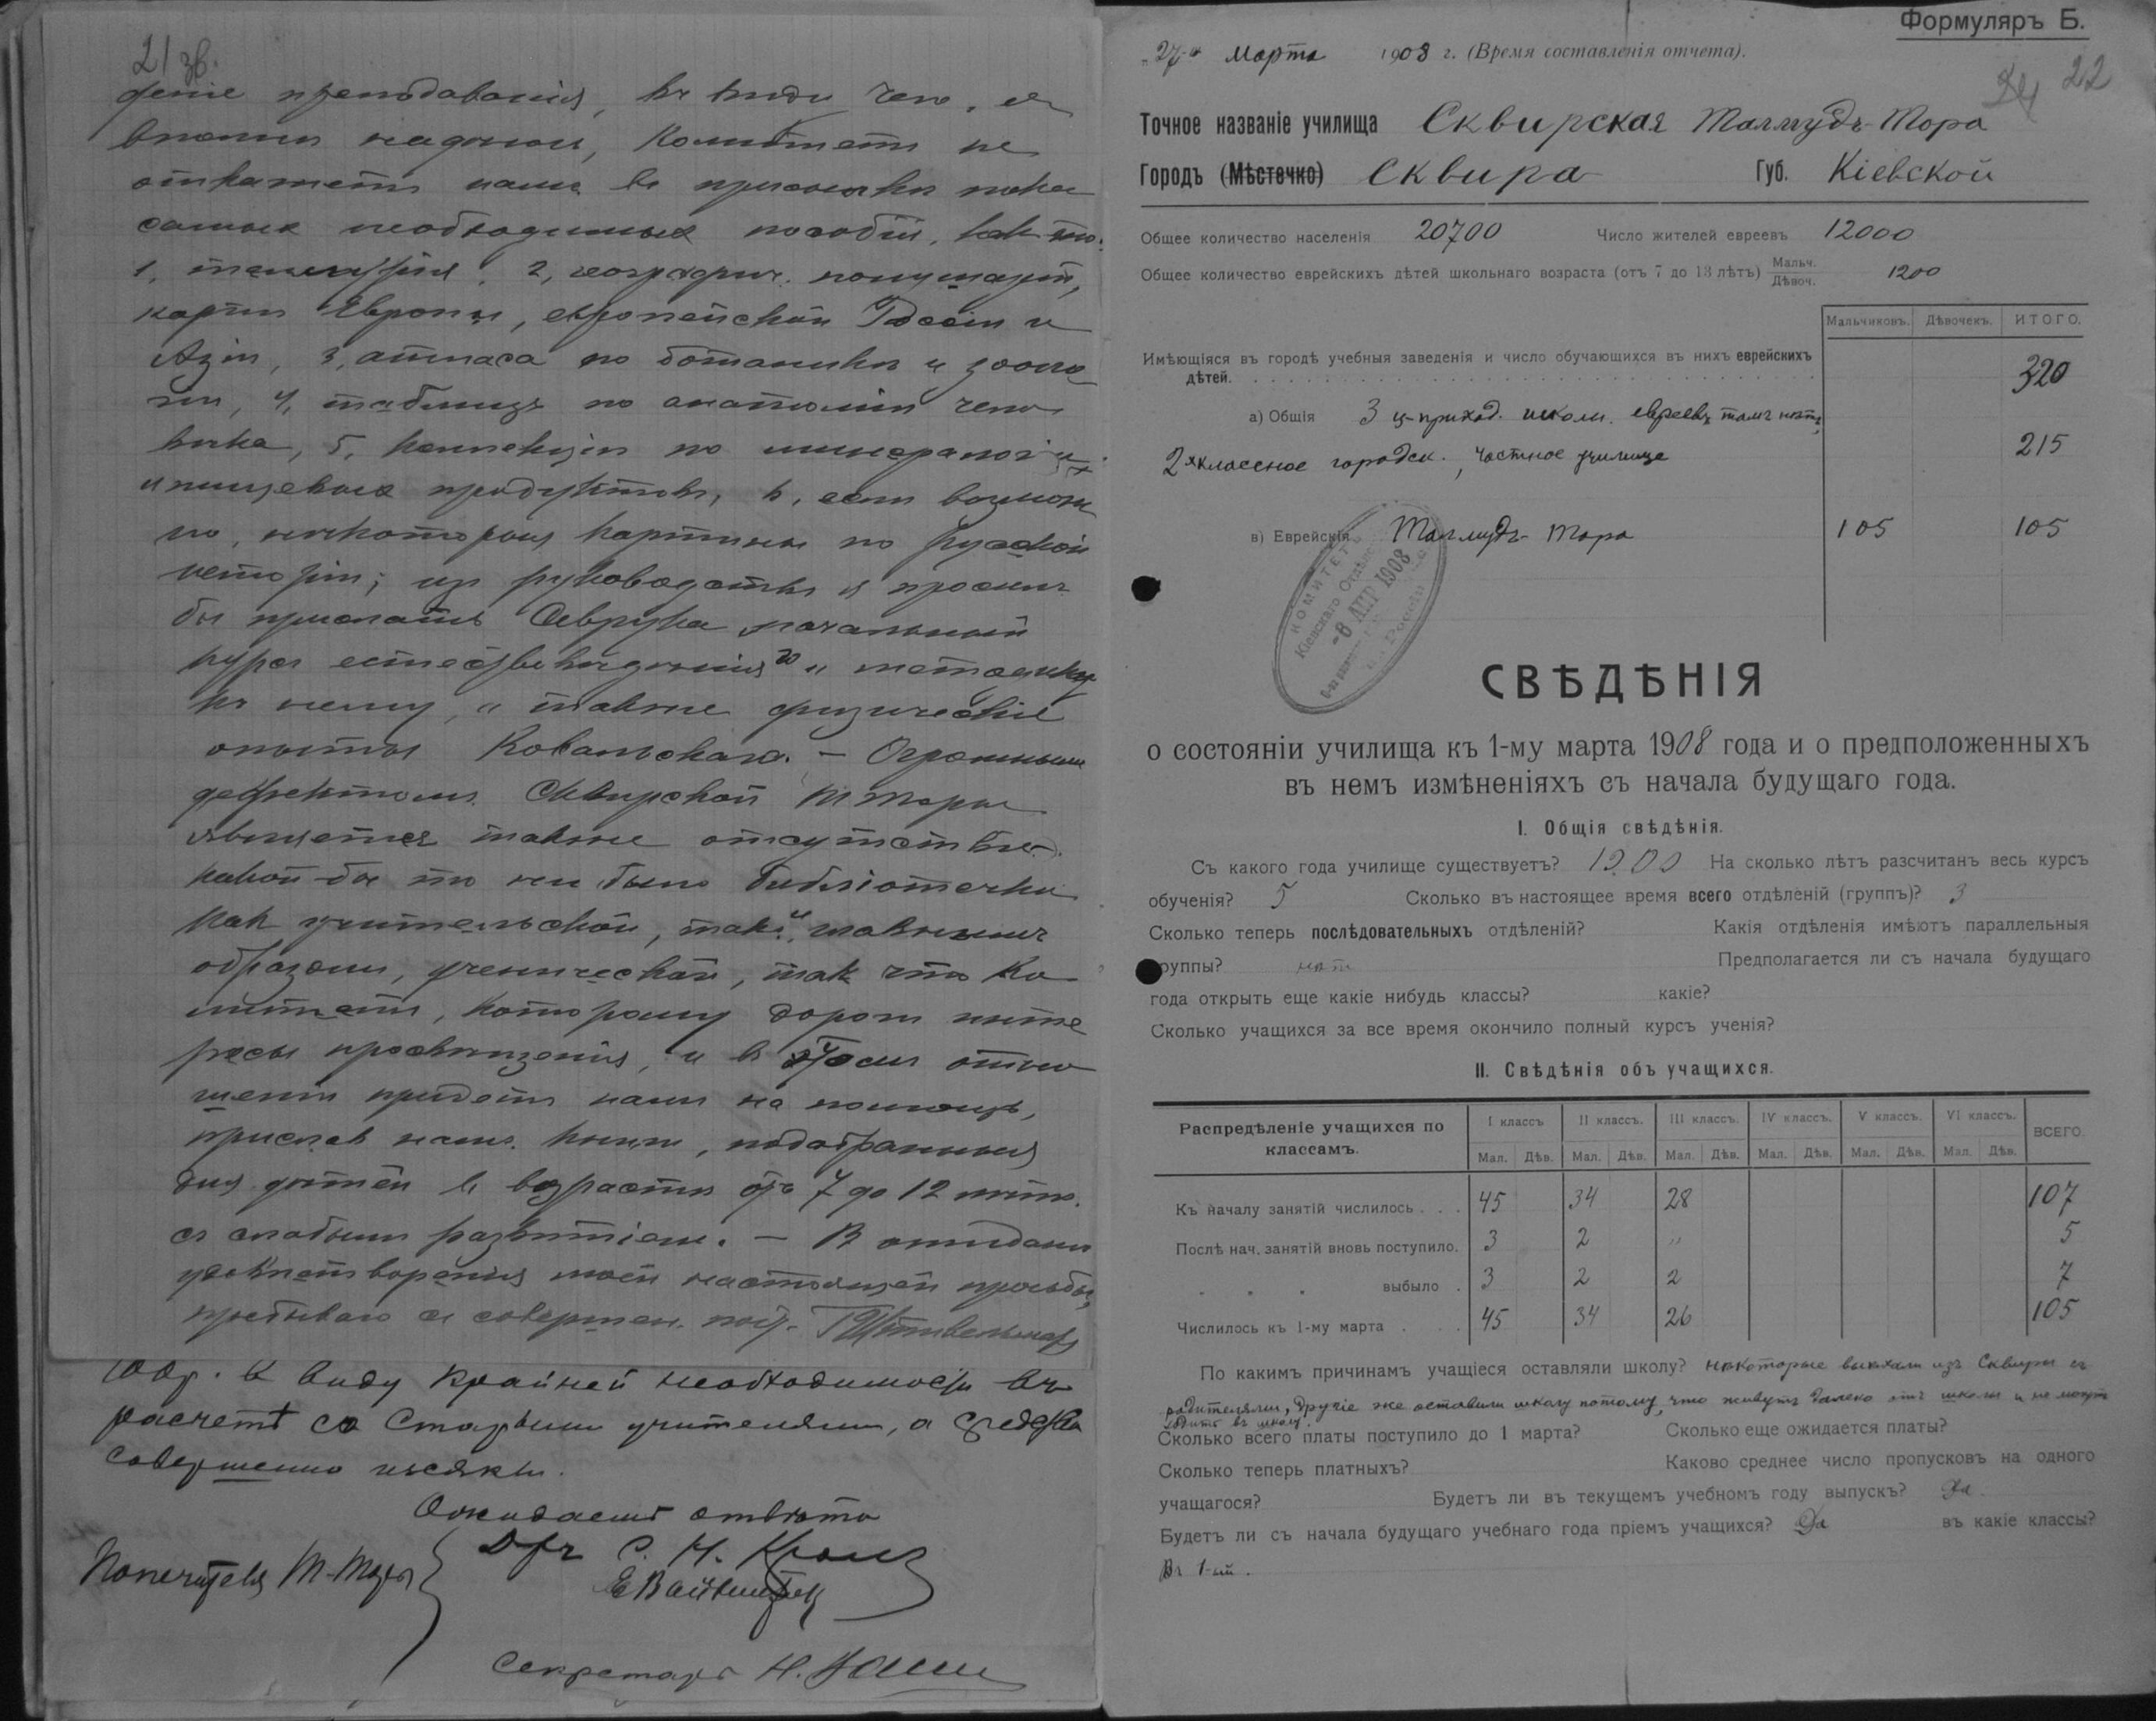 21 зв.
деніе преподаванія, въ виду чего, я
вполнѣ надѣюсь, Комитетъ не
откажетъ намъ въ присылкѣ пока
самыхъ необходимыхъ пособій, какъ то:
1, теллурія, 2, географич. полушарія,
карты Европы, европейской Россіи и
Азіи, 3, атласа по ботаникѣ и зооло
гіи, 4, таблицъ по анатоміи чело
вѣка, 5, коллекціи по минералогіи
и пищевыхъ продуктовъ, 6, если возмож
но, нѣкоторыя картины по русской
исторіи; из руководствъ я просилъ
бы прислать Севрука „начальный
курсъ естествовѣдѣнія" и методику
къ нему, а также физическіе
опыты Ковальскаго. — Огромнымъ
дефектомъ Сквирской Т Торы
является также отсутствіе
какой бы то ни было библіотечки
как учительской, такъ и, главнымъ
образомъ, ученической, так что Ко
митетъ, которому дороги инте
ресы просвѣщенія, и в этомъ отно
шеніи придетъ намъ на помощь,
прислав намъ книги, подобранныя
для дѣтей в возрастѣ отъ 7 до 12 лѣтъ
съ слабымъ развитіемъ. — В ожиданіи
удовлетворенія моей настоящей просьбы,
пребываю съ совершен. поч.
въ виду крайней необходимости въ
расчетѣ со старыми учителями, а средства
совершенно изсякли.
Ожидаемъ отвѣта
Попечителя Т-Торы
Дръ С. Н.
Секретарь Н.
Формуляръ Б.
„27" Марта 1908 г. (Время составленія отчета).
22
Точное названіе училища Сквирская Талмудъ-Тора
Городъ (Мѣстечко) Сквира Губ. Кіевской
Общее количество населенія 20700 Число жителей евреевъ 12000
Общее количество еврейскихъ дѣтей школьнаго возраста (отъ 7 до 13 лѣтъ) Мальч. Дѣвоч. 1200
Мальчиковъ. Дѣвочекъ. ИТОГО.
Имѣющіяся въ городѣ учебныя заведенія и число обучающихся въ нихъ еврейскихъ
дѣтей. 320
а) Общія 3 ц-приход. школы. евреевъ тамъ нѣтъ,
2хклассное городск., частное училище 215
в) Еврейскія Талмудъ-Тора 105 105
КОМИТЕТЪ
Кіевскаго Отдѣл
-8 АПР 1908
СВѢДѢНІЯ
о состояніи училища къ 1-му марта 1908 года и о предположенныхъ
въ немъ измѣненіяхъ съ начала будущаго года.
I. Общія свѣдѣнія.
Съ какого года училище существуетъ? 1900 На сколько лѣтъ разсчитанъ весь курсъ
обученія? 5 Сколько въ настоящее время всего отдѣленій (группъ)? 3
Сколько теперь послѣдовательныхъ отдѣленій? Какія отдѣленія имѣютъ параллельныя
группы? нѣт Предполагается ли съ начала будущаго
года открыть еще какіе нибудь классы? какіе?
Сколько учащихся за все время окончило полный курсъ ученія?
II. Свѣдѣнія объ учащихся.
Распредѣленіе учащихся по классамъ. I классъ II классъ. III классъ. IV классъ. V классъ. VI классъ. ВСЕГО.
Мал. Дѣв. Мал. Дѣв. Мал. Дѣв. Мал. Дѣв. Мал. Дѣв. Мал. Дѣв.
Къ началу занятій числилось . . . 45 34 28 107
Послѣ нач. занятій вновь поступило. 3 2 „ 5
„ „ „ выбыло . 3 2 2 7
Числилось къ 1-му марта . . . 45 34 26 105
По какимъ причинамъ учащіеся оставляли школу? нѣкоторые выѣхали изъ Сквиры съ
родителями, другіе же оставили школу потому, что живутъ далеко отъ школы и не могутъ
ходить въ школу.
Сколько всего платы поступило до 1 марта? Сколько еще ожидается платы?
Сколько теперь платныхъ? Каково среднее число пропусковъ на одного
учащагося? Будетъ ли въ текущемъ учебномъ году выпускъ? Да
Будетъ ли съ начала будущаго учебнаго года пріемъ учащихся? Да въ какіе классы?
Въ 1-ый.